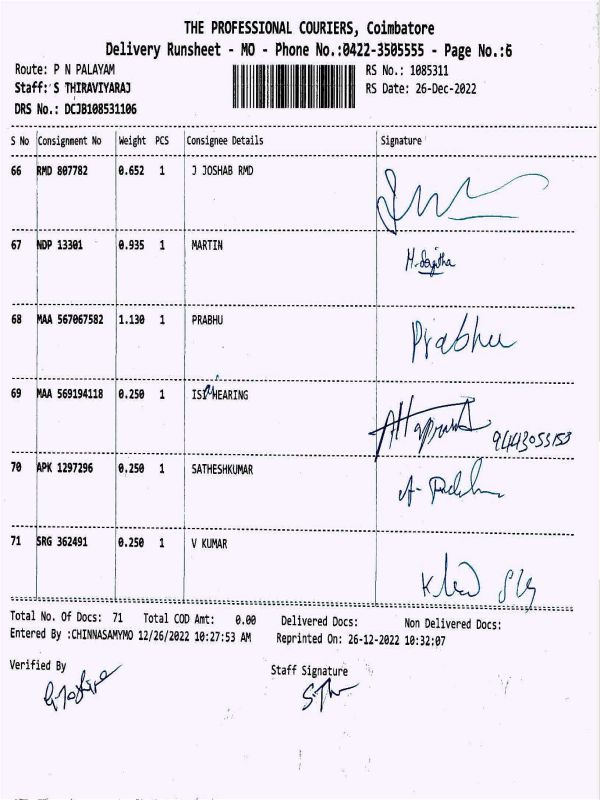 THE PROFESSIONAL COURIERS, Coimbatore
Delivery Runsheet - MO - Phone No.:0422-3505555 - Page No.:6
Route: P N PALAYAM RS No.: 1085311
Staff: S THIRAVIYARAJ RS Date: 26-Dec-2022
DRS No.: DCJB108531106
S No Consignment No Weight PCS Consignee Details Signature
66 RMD 807782 0.652 1 J JOSHAB RMD
67 NDP 13301 0.935 1 MARTIN
68 MAA 567067582 1.130 1 PRABHU Prabhu
69 MAA 569194118 0.250 1 HEARING 9443053153
70 APK 1297296 0.250 1 SATHESHKUMAR
71 SRG 362491 0.250 1 V KUMAR
Total No. Of Docs: 71 Total COD Amt: 0.00 Delivered Docs: Non Delivered Docs:
Entered By :CHINNASAMYMO 12/26/2022 10:27:53 AM Reprinted On: 26-12-2022 10:32:07
Verified By Staff Signature